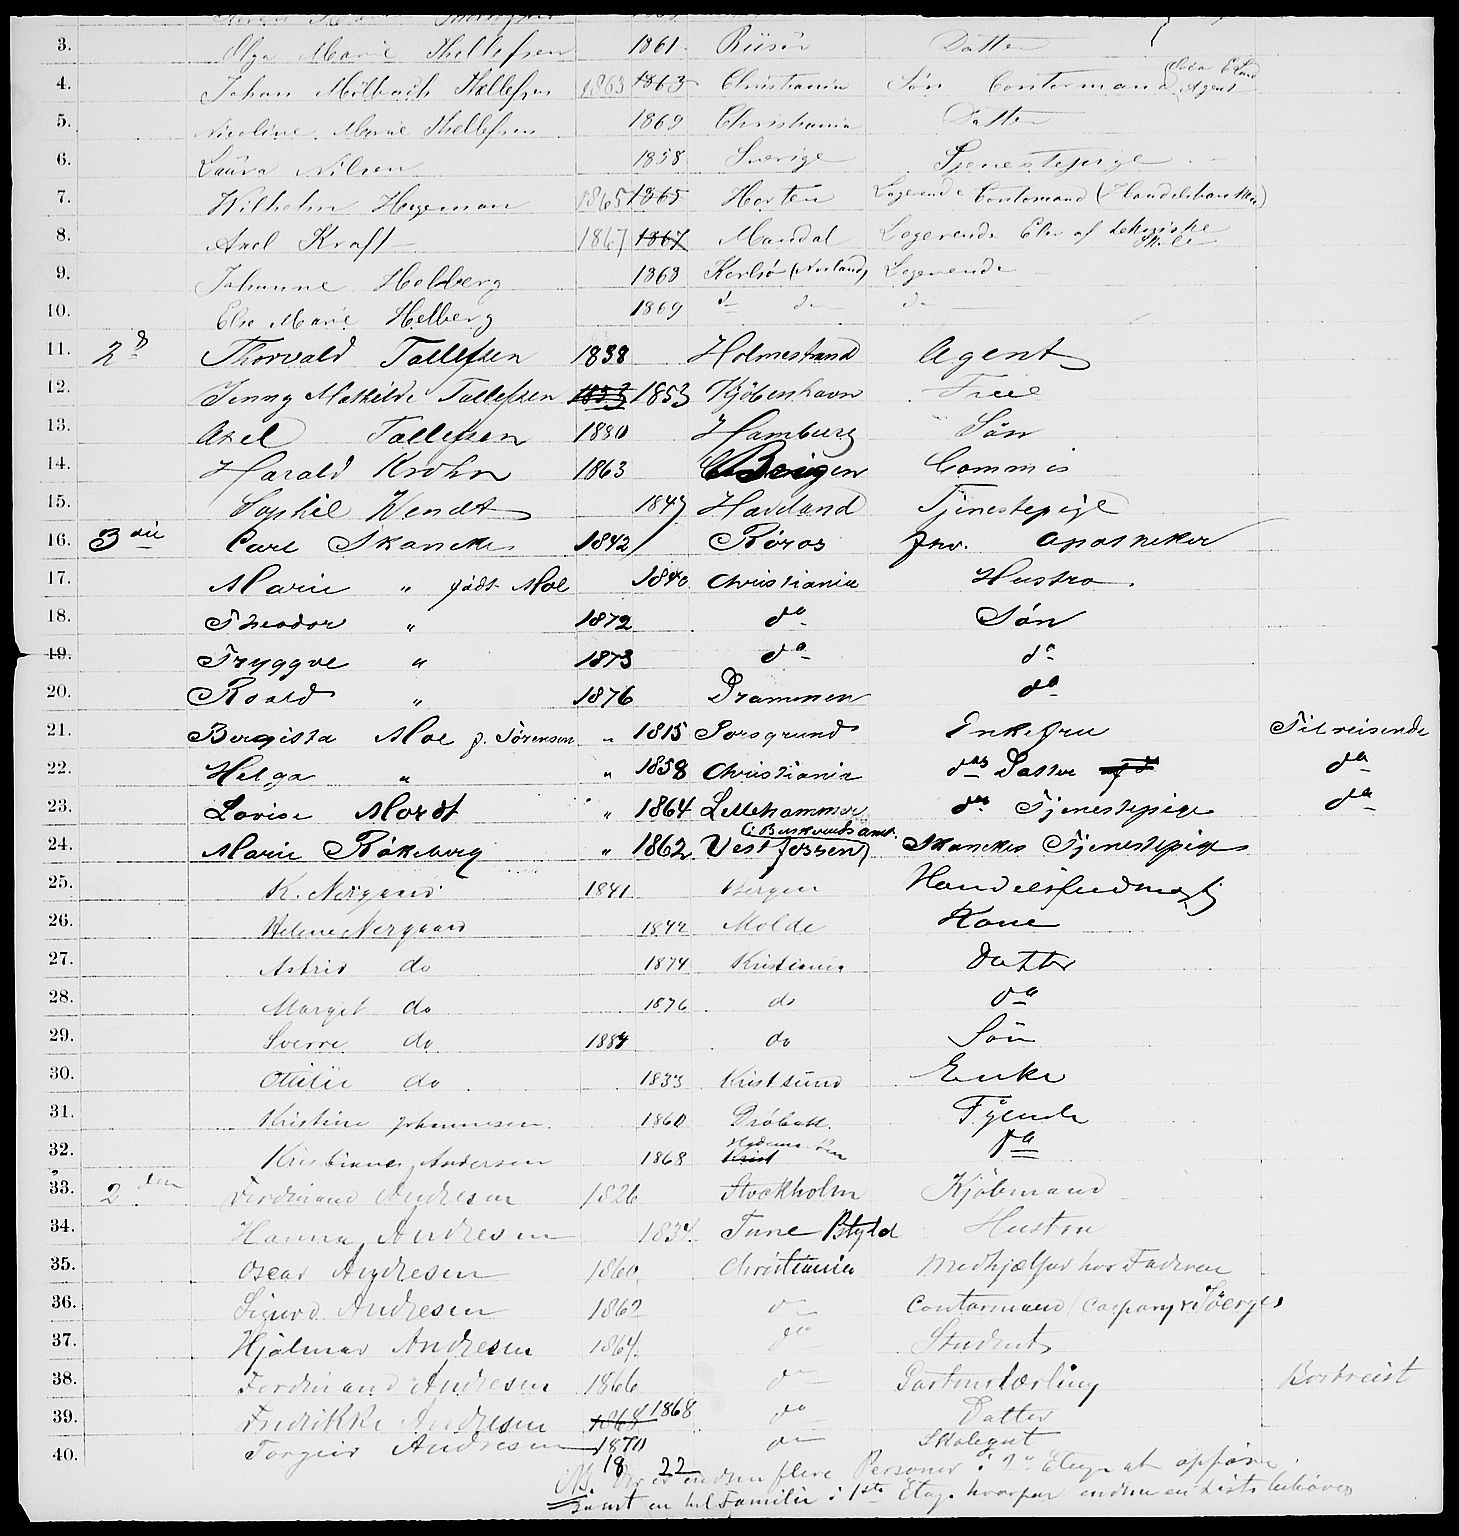 3. Olga Marie Thellefsen 1861 Riisør Datter
4. Johan Milbach Thellefsen 1863 1863 Christiania Søn Contormand Agent
5. Nicoline Marie Thellefsen 1869 Christiania Datter
6. Laura Nilsen 1858 Sverige Tjenestepige
7. Wilhelm Hegeman 1865 1865 Horten Logerende Contormand
8. Axel Kraft 1867 1867 Mandal Logerende Elev af tekniske Skole
9. Johanne Helberg 1868 Karlsø (Norland) Logerende
10. Else Marie Helberg 1869 do do do
11. 2d Thorvald Tollefsen 1838 Holmestrand Agent
12. Jenny Mathilde Tollefsen 1853 1853 Kjøbenhavn Frue
13. Axel Tollefsen 1880 Hamburg Søn
14. Harald Krohn 1863 Bergen Commis
15. Sophie Wendt 1847 Hadeland Tjenestepige
16. 3die Carl Skancke 1842 Røros fhv. Apotheker
17. Marie " født Moe 1840 Christiania Hustro
18. Theodor " 1872 do Søn
19. Tryggve " 1873 do do
20. Roald " 1876 Drammen do
21. Bergista Moe f. Sørensen " 1815 Porsgrund Enkefru Tilreisende
22. Helga " " 1858 Christiania des Datter do
23. Lovise Mordt " 1864 Lillehammer des Tjenestepige do
24. Marie Røkeberg " 1862 Vestfossen (i Buskeruds amt) Skanckes Tjenestepige
25. K. Nergaard 1841 Bergen Handelsfuldmægtig
26. Helene Nergaard 1842 Molde Kone
27. Astrid do 1874 Kristiania Datter
28. Margit do 1876 do do
29. Sverre do 1884 do Søn
30. Ottilie do 1833 Kristsund Enke
31. Kristine Johannesen 1860 Drøbak Tyende
32. Kristiane Andersen 1868 Krist do
33. 2den Ferdinand Andresen 1826 Stockholm Kjøbmand
34. Hanna Andresen 1834 Tune Hustru
35. Oscar Andresen 1860 Christiania Medhjælper hos Faderen
36. Sigurd Andresen 1862 do Contormand
37. Hjalmar Andresen 1864 do Student
38. Ferdinand Andresen 1866 do Gartnerlærling Bortreist
39. Fredrikke Andresen 1868 1868 do Datter
40. Torgeir Andresen 1870 do Skolegut
18 22
NB. Der er endnu flere Personer i 2den Etage at opføre
samt en hel Familie i 1ste Etage hvorfor endnu en Liste behøves